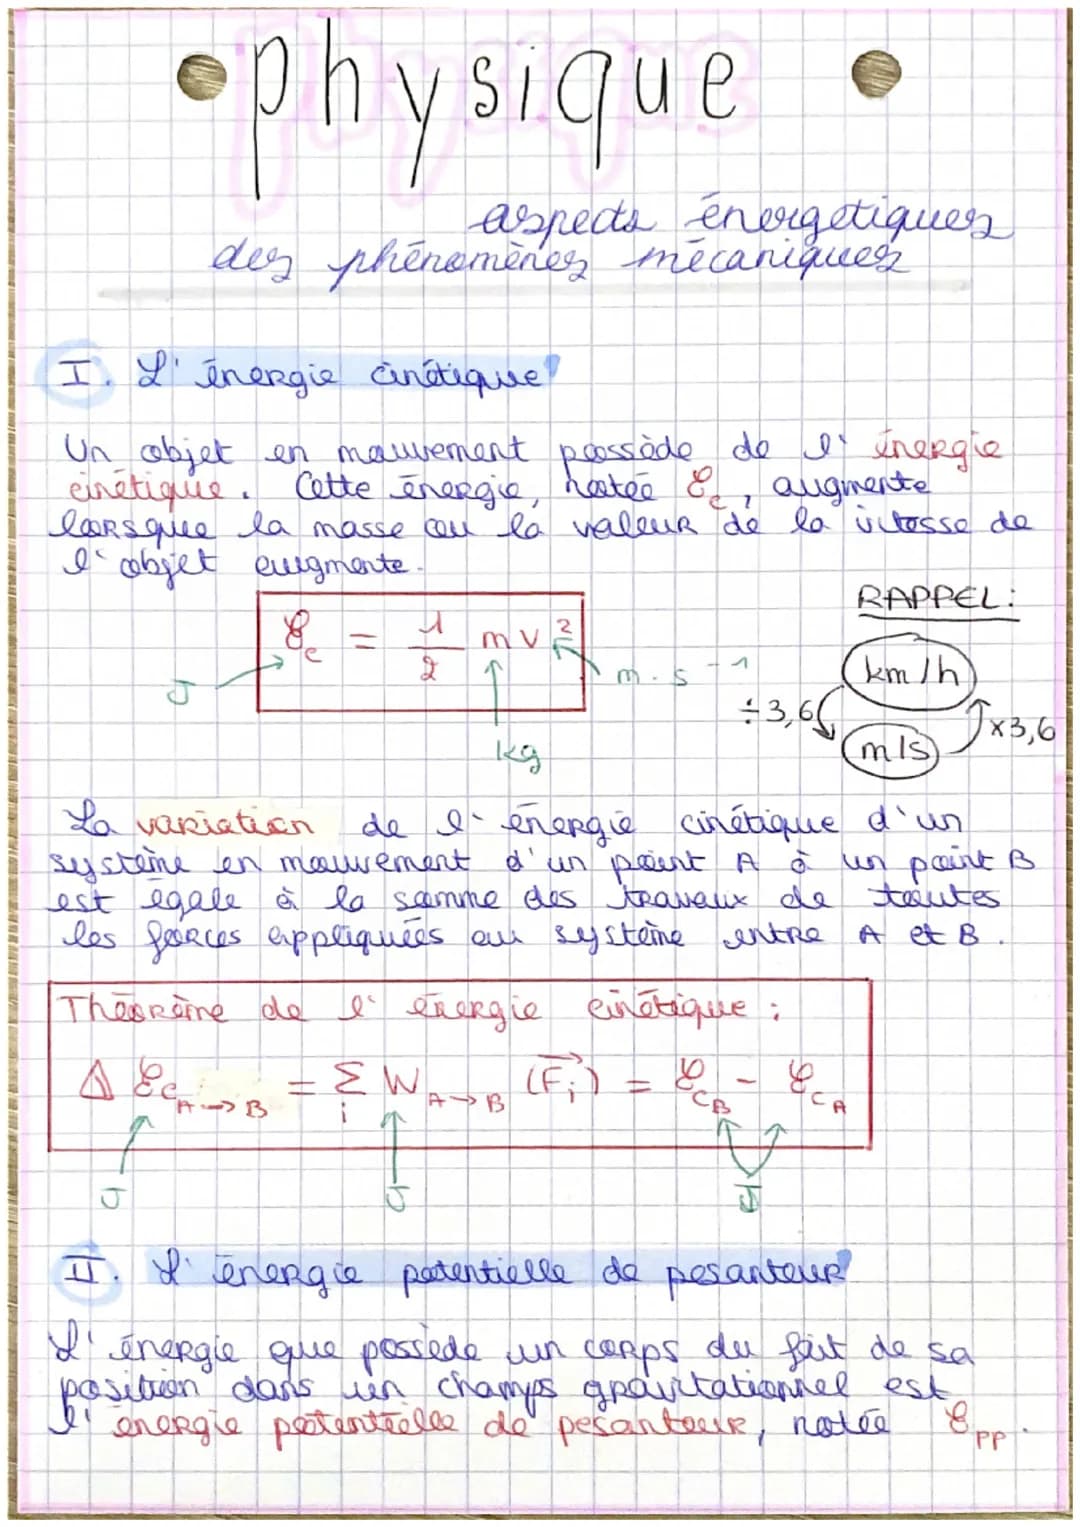 physique
aspects énergetiques
des phénomènes mécaniques
I. L'énergie cinétique
Un objet en mouvement possède de l'énergie
cinétique. Cette énergie, notée Ec, augmente
lorsque la masse ou la valeur de la vitesse de
l'objet augmente.
RAPPEL:
Ec = 1/2 m v²
J
m.s⁻¹
kg
km/h
÷3,6
x3,6
m/s
La variation de l'énergie cinétique d'un
système en mouvement d'un point A à un point B
est égale à la somme des travaux de toutes
les forces appliquées au système entre A et B.
Théorème de l'énergie cinétique :
Δ Ec A→B = Σi W A→B (F⃗i) = Ec B - Ec A
J J J
II. L'énergie potentielle de pesanteur
L'énergie que possède un corps du fait de sa
position dans un champs gravitationnel est
l'énergie potentielle de pesanteur, notée Epp.